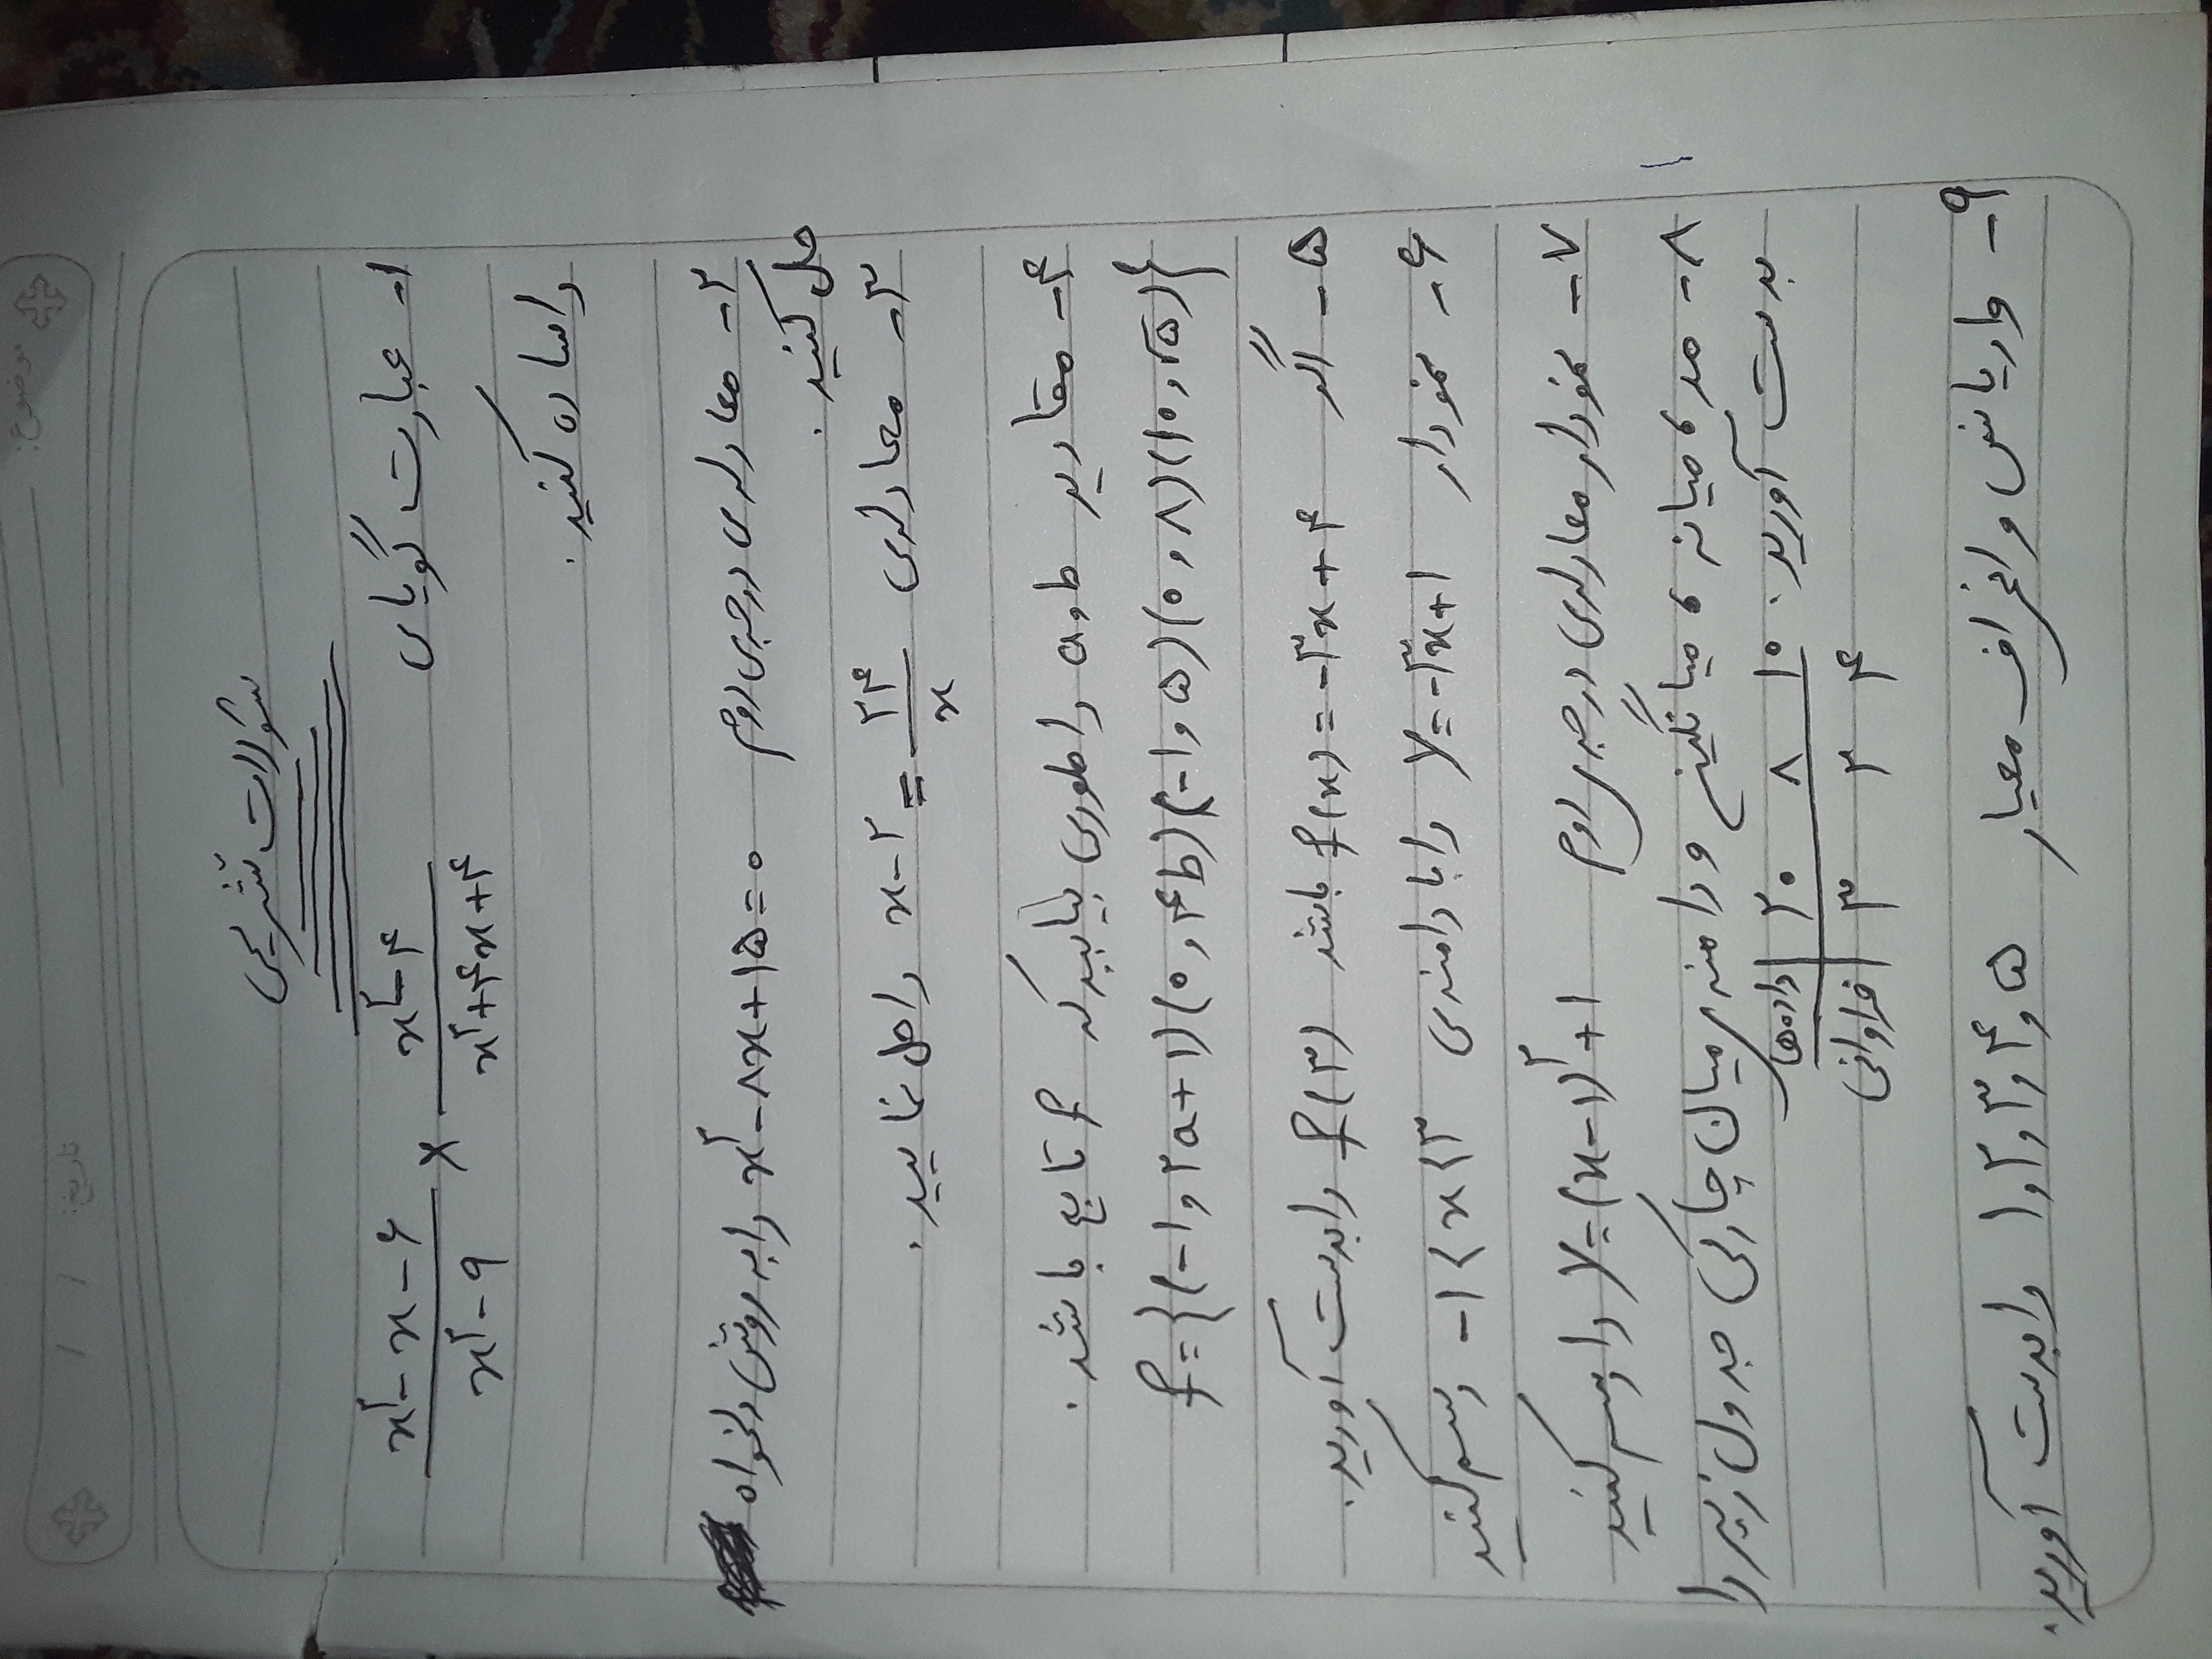 موضوع:
تاریخ: / /
سئوالات تشریحی
۱- عبارت گویای (x²-x-۶)/(x²-۹) × (x²-۴)/(x²+۴x+۴)
را ساده کنید.
۲- معادله‌ی درجه‌ی دوم x²-۸x+۱۵=۰ را به روش دلخواه
حل کنید.
۳- معادله‌ی x-۲ = ۲۴/x را حل نمایید.
۴- مقادیر a,b را طوری بیابید که f تابع باشد.
f={(-۱,۲a+۱)(۰,۴b)(-۱,۵)(۰,۸)(۱۰,√۵)}
۵- اگر f(x)=-۳x+۴ باشد f(۳) را بدست آورید.
۶- نمودار y=-۳x+۱ را با دامنه‌ی -۱<x<۳ رسم کنید
۷- نمودار معادله‌ی درجه‌ی دوم y=(x-۱)²+۱ را رسم کنید
۸- مد، میانه، میانگین و دامنه‌ی میان چارکی جدول زیر را
بدست آورید. داده‌ها | ۲۰ ۸ ۱۰
فراوانی | ۳ ۲ ۴
۹- واریانس و انحراف معیار ۱,۲,۳,۴,۵ را بدست آورید.